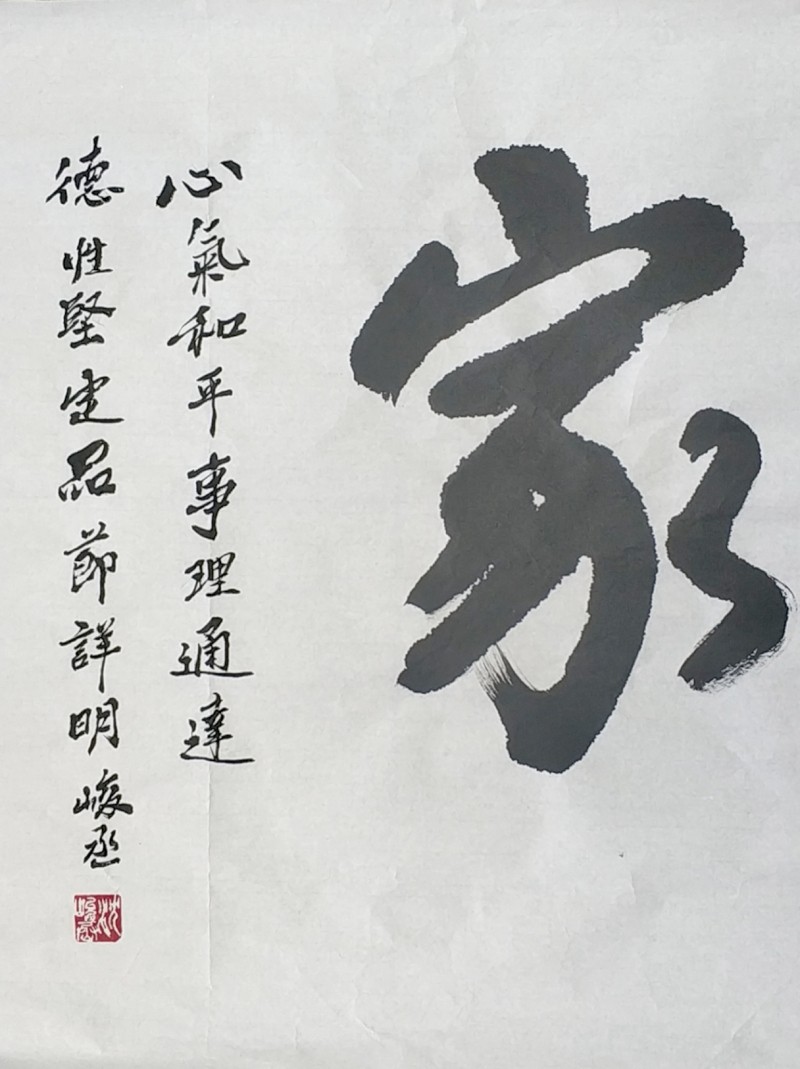 家
心氣和平事理通達
德性堅定品節詳明 峻丞